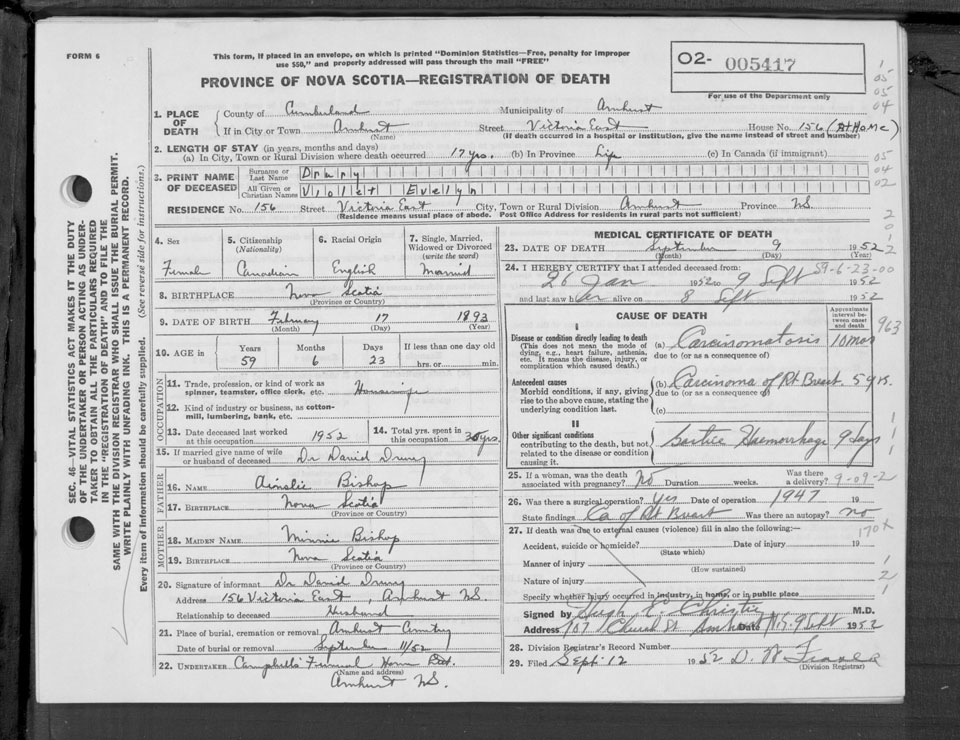 FORM 6
This form, if placed in an envelope, on which is printed "Dominion Statistics—Free, penalty for improper
use $50," and properly addressed will pass through the mail "FREE"
PROVINCE OF NOVA SCOTIA—REGISTRATION OF DEATH
O2- 005417
For use of the Department only
1. PLACE OF DEATH
County of Cumberland Municipality of Amherst
If in City or Town Amherst Street Victoria East House No. 156 (At Home)
(Name) (If death occurred in a hospital or institution, give the name instead of street and number)
2. LENGTH OF STAY (in years, months and days)
(a) In City, Town or Rural Division where death occurred 17 yrs. (b) In Province Life (c) In Canada (if immigrant)
3. PRINT NAME OF DECEASED
Surname or Last Name Drury
All Given or Christian Names Violet Evelyn
RESIDENCE No. 156 Street Victoria East City, Town or Rural Division Amherst Province NS
(Residence means usual place of abode. Post Office Address for residents in rural parts not sufficient)
4. Sex Female
5. Citizenship (Nationality) Canadian
6. Racial Origin English
7. Single, Married, Widowed or Divorced (write the word) Married
8. BIRTHPLACE Nova Scotia
(Province or Country)
9. DATE OF BIRTH February 17 1893
(Month) (Day) (Year)
10. AGE in Years 59 Months 6 Days 23 If less than one day hrs. or min.
OCCUPATION
11. Trade, profession, or kind of work as
spinner, teamster, office clerk, etc.
12. Kind of industry or business, as cotton-
mill, lumbering, bank, etc.
13. Date deceased last worked at this occupation 1952
14. Total yrs. spent in this occupation 35 yrs.
15. If married give name of wife
or husband of deceased Dr David Drury
FATHER
16. NAME Ainslie Bishop
17. BIRTHPLACE Nova Scotia
(Province or Country)
MOTHER
18. MAIDEN NAME Minnie Bishop
19. BIRTHPLACE Nova Scotia
(Province or Country)
20. Signature of informant Dr David Drury
Address 156 Victoria East, Amherst NS.
Relationship to deceased Husband
21. Place of burial, cremation or removal Amherst Cemetery
Date of burial or removal September 11/52
22. UNDERTAKER Campbells Funeral Home
(Name and address)
Amherst NS.
MEDICAL CERTIFICATE OF DEATH
23. DATE OF DEATH September 9 1952
(Month) (Day) (Year)
24. I HEREBY CERTIFY that I attended deceased from:
59-6-23-00
26 Jan 1952 to 9 Sept 1952
and last saw her alive on 8 Sept 1952
CAUSE OF DEATH
Approximate interval between onset and death
I
Disease or condition directly leading to death
(This does not mean the mode of
dying, e.g., heart failure, asthenia,
etc. It means the disease, injury, or
complication which caused death.)
(a) Carcinomatosis 10 mos
due to (or as a consequence of)
Antecedent causes
Morbid conditions, if any, giving
rise to the above cause, stating the
underlying condition last.
(b) Carcinoma of Rt Breast. 5 yrs.
due to (or as a consequence of)
(c)
II
Other significant conditions
contributing to the death, but not
related to the disease or condition
causing it.
Haemorrhage 9 days
25. If a woman, was the death
associated with pregnancy? No Duration weeks. Was there a delivery? 9-09-2
26. Was there a surgical operation? yes Date of operation 1947 19
State findings Ca of Rt Breast Was there an autopsy? no
27. If death was due to external causes (violence) fill in also the following:—
Accident, suicide or homicide? Date of injury 19
(State which)
Manner of injury
(How sustained)
Nature of injury
Specify whether injury occurred in industry, in home, or in public place
Signed by Hugh E. Christie M.D.
Address 107 Church St Amherst Date 9 Sept 1952
28. Division Registrar's Record Number
29. Filed Sept. 12 1952 D. W. Fraser
(Division Registrar)
SEC. 46—VITAL STATISTICS ACT MAKES IT THE DUTY
OF THE UNDERTAKER OR PERSON ACTING AS UNDER-
TAKER TO OBTAIN ALL THE PARTICULARS REQUIRED
IN THE "REGISTRATION OF DEATH" AND TO FILE THE
SAME WITH THE DIVISION REGISTRAR WHO SHALL ISSUE THE BURIAL PERMIT.
WRITE PLAINLY WITH UNFADING INK. THIS IS A PERMANENT RECORD.
Every item of information should be carefully supplied. (See reverse side for instructions.)
1
05
05
04
05
04
02
2
0
1
2
963
1
1
1
170x
1
2
1